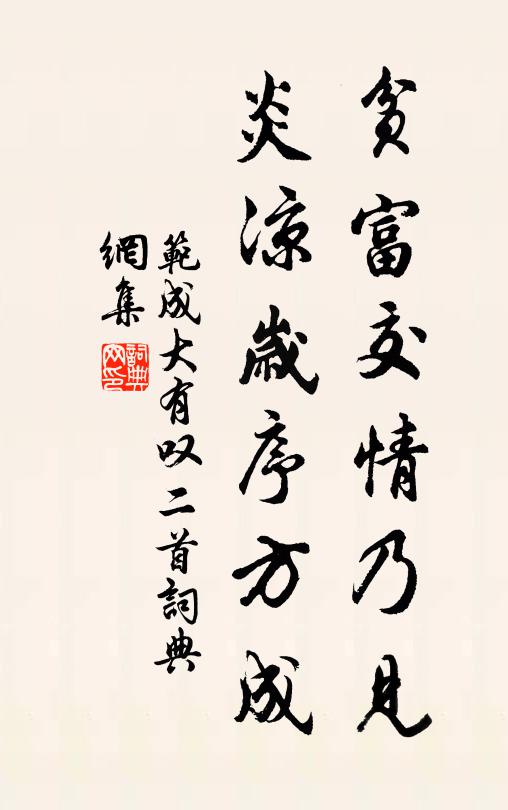 貧富交情乃見
炎涼歲序方成
範成大有叹二首詞典
網集
詞典
网印